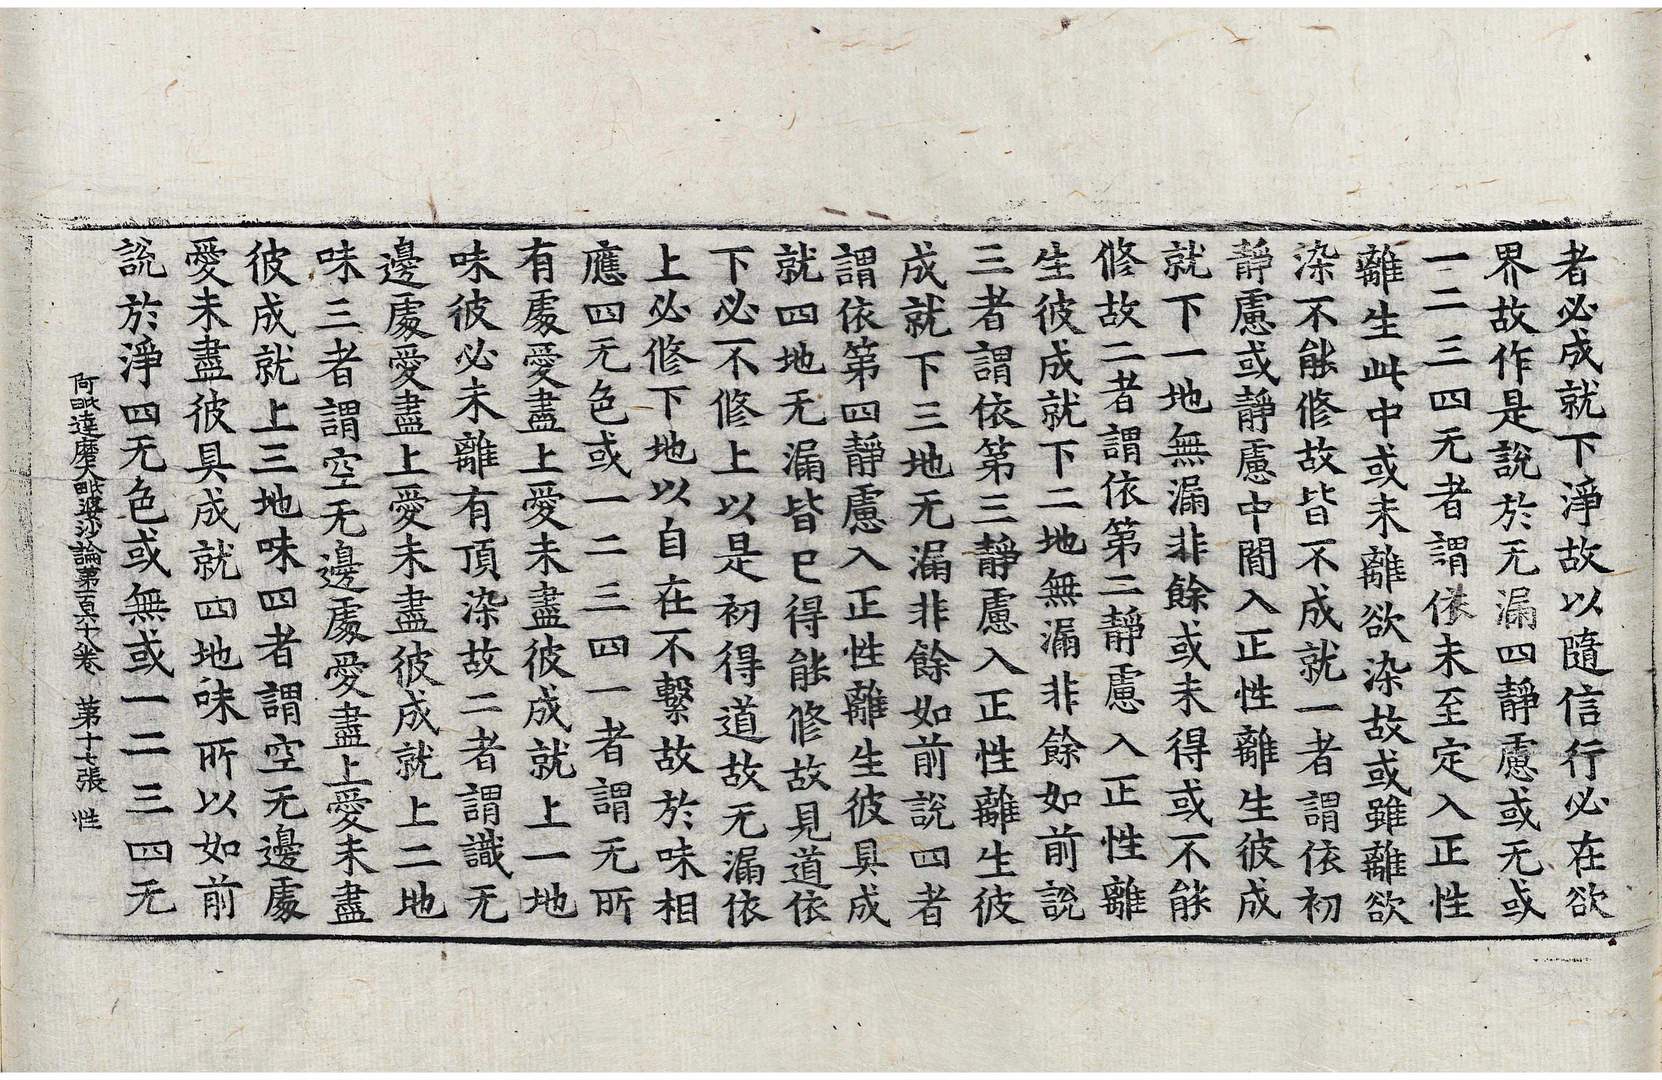 者必成就下淨故以隨信行必在欲
界故作是說於无漏四靜慮或无或
一二三四无者謂依未至定入正性
離生此中或未離欲染故或雖離欲
染不能修故皆不成就一者謂依初
靜慮或靜慮中間入正性離生彼成
就下一地無漏非餘或未得或不能
修故二者謂依第二靜慮入正性離
生彼成就下二地無漏非餘如前說
三者謂依第三靜慮入正性離生彼
成就下三地无漏非餘如前說四者
謂依第四靜慮入正性離生彼具成
就四地无漏皆已得能修故見道依
下必不修上以是初得道故无漏依
上必修下地以自在不繫故於味相
應四无色或一二三四一者謂无所
有處愛盡上愛未盡彼成就上一地
味彼必未離有頂染故二者謂識无
邊處愛盡上愛未盡彼成就上二地
味三者謂空无邊處愛盡上愛未盡
彼成就上三地味四者謂空无邊處
愛未盡彼具成就四地味所以如前
說於淨四无色或無或一二三四无
阿毗達磨大毗婆沙論第一百六十八卷 第十七張 性